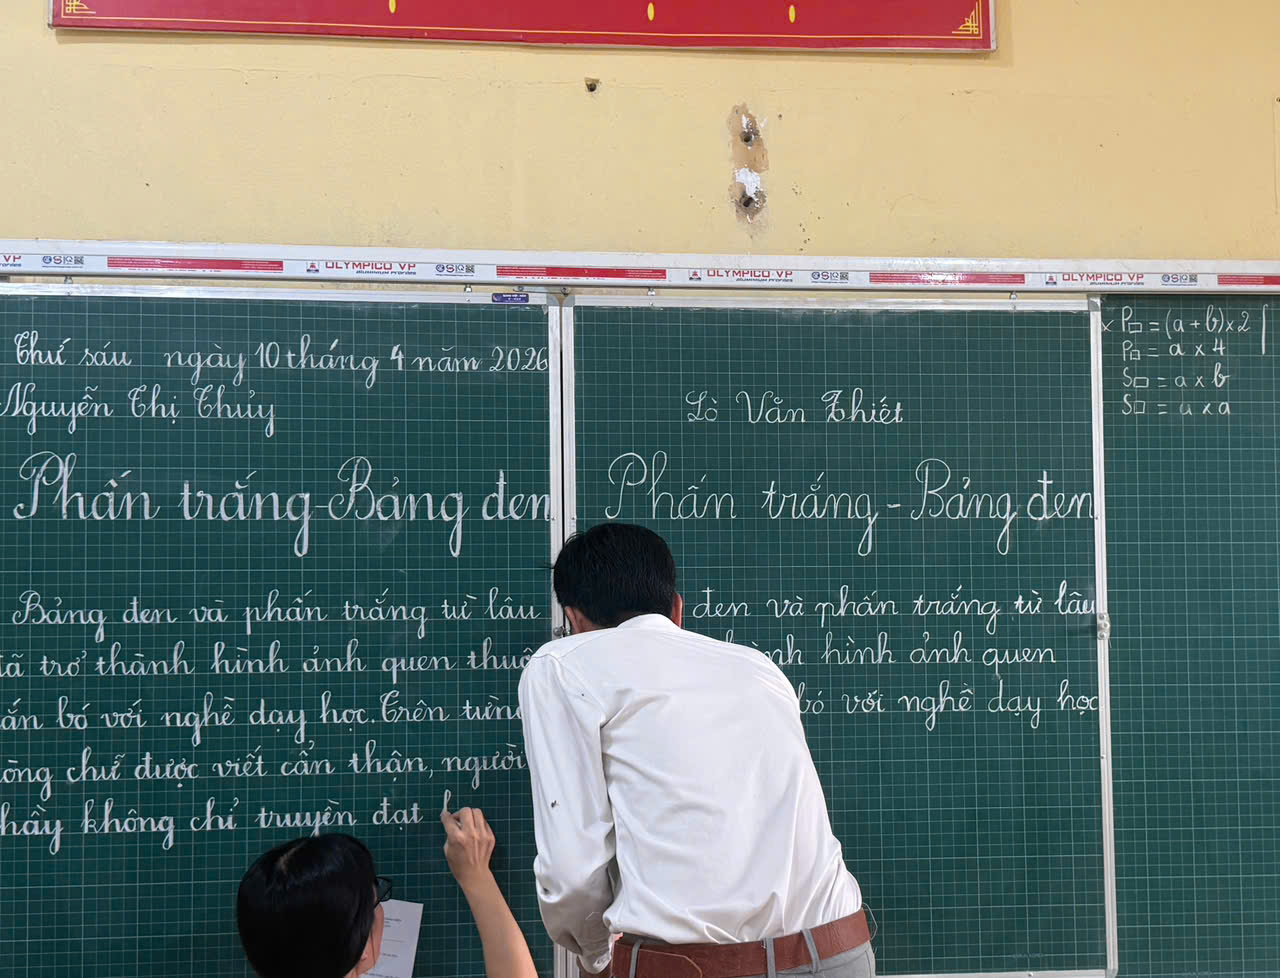 OLYMPICO VP
OLYMPICO VP
OLYMPICO VP
Thứ sáu ngày 10 tháng 4 năm 2026
Nguyễn Thị Thủy
Phấn trắng - Bảng đen
Bảng đen và phấn trắng từ lâu
trở thành hình ảnh quen
bó với nghề dạy học. Trên từng
chữ được viết cẩn thận, người
không chỉ truyền đạt
Lò Văn Thiết
Phấn trắng - Bảng đen
đen và phấn trắng từ lâu
hình ảnh quen
bó với nghề dạy học
x P▭ = (a + b) x 2
P□ = a x 4
S▭ = a x b
S□ = a x a